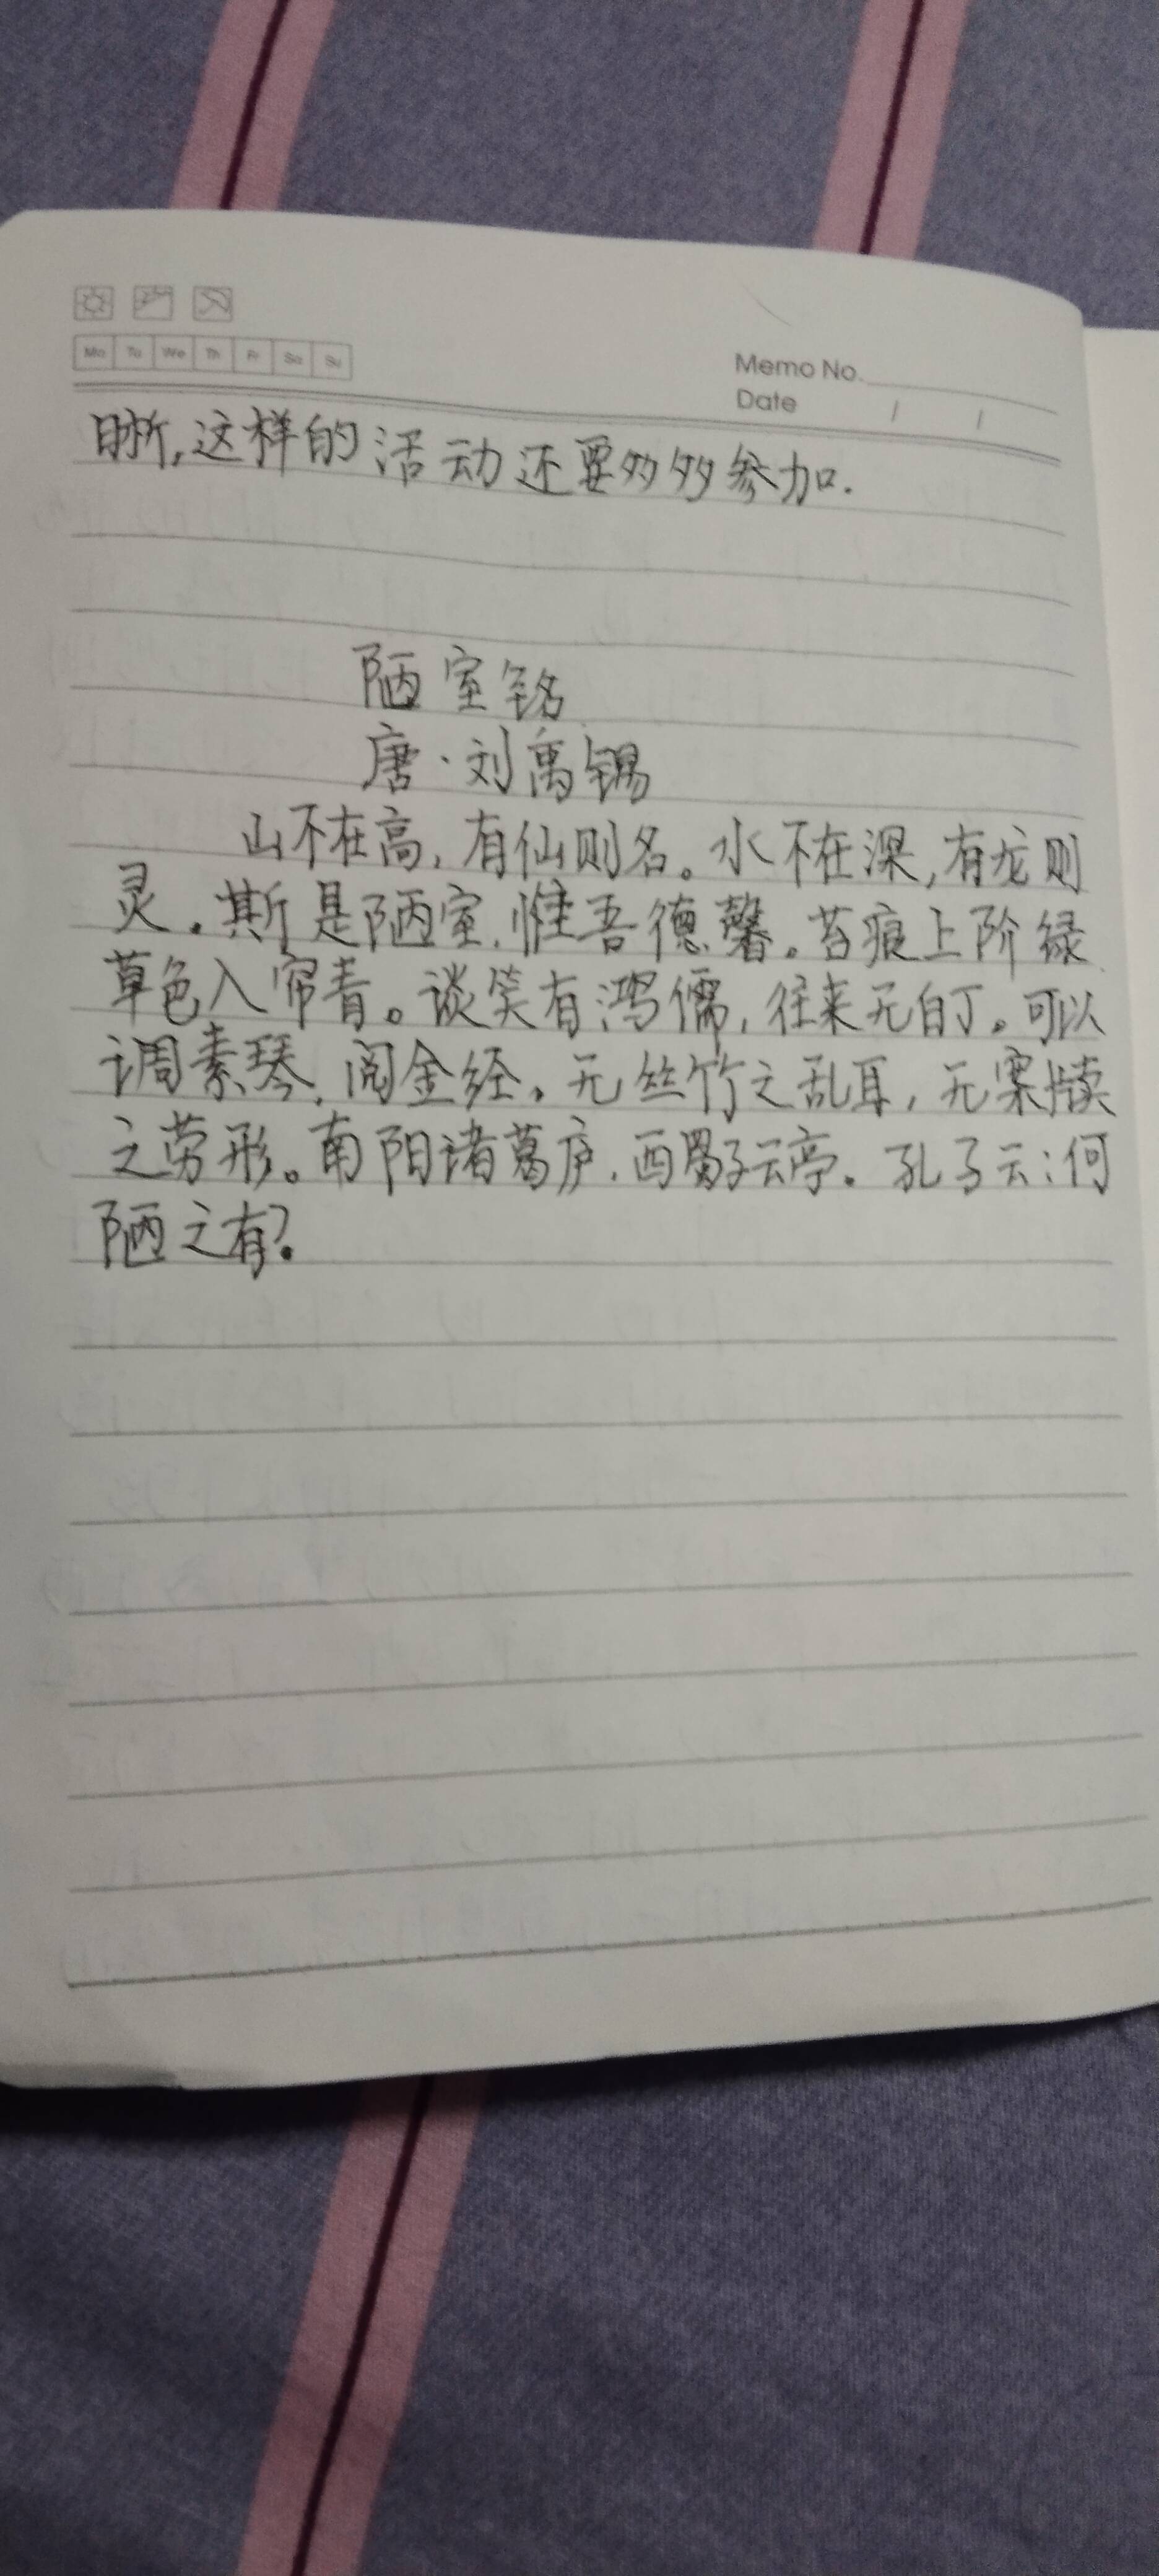 Mo Tu We Th Fr Sa Su
Memo No.
Date / /
晰,这样的活动还要多多参加.
陋室铭
唐·刘禹锡
山不在高,有仙则名。水不在深,有龙则
灵。斯是陋室,惟吾德馨。苔痕上阶绿,
草色入帘青。谈笑有鸿儒,往来无白丁。可以
调素琴,阅金经。无丝竹之乱耳,无案牍
之劳形。南阳诸葛庐,西蜀子云亭。孔子云:何
陋之有?